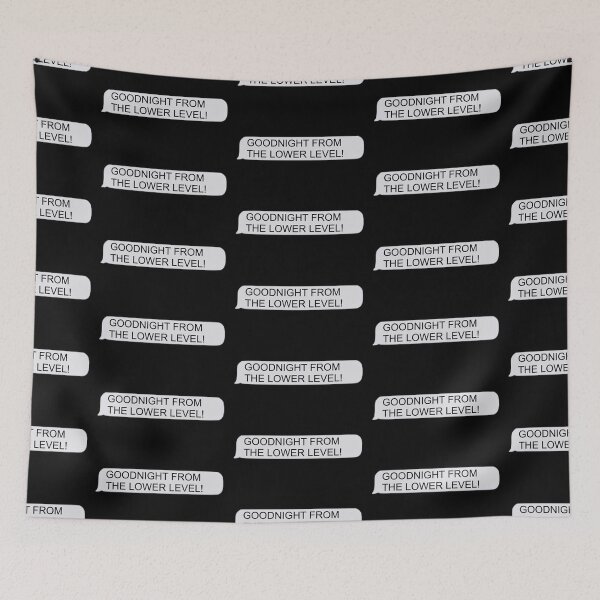 THE LOWER LEVEL!
GOODNIGHT FROM
THE LOWER LEVEL!
GOODNIGHT FROM
THE LOWER LEVEL!
FROM
LEVEL!
GOODNIGHT FROM
THE LOWER LEVEL!
GOODNIGHT
THE LOWER
GOODNIGHT FROM
THE LOWER LEVEL!
GOODNIGHT FROM
THE LOWER LEVEL!
FROM
LEVEL!
GOODNIGHT FROM
THE LOWER LEVEL!
GOODNIGHT
THE LOWER
GOODNIGHT FROM
THE LOWER LEVEL!
GOODNIGHT FROM
THE LOWER LEVEL!
FROM
LEVEL!
GOODNIGHT FROM
THE LOWER LEVEL!
GOODNIGHT
THE LOWER
GOODNIGHT FROM
THE LOWER LEVEL!
GOODNIGHT FROM
THE LOWER LEVEL!
FROM
LEVEL!
GOODNIGHT FROM
THE LOWER LEVEL!
GOODNIGHT
THE LOWER
GOODNIGHT FROM
THE LOWER LEVEL!
GOODNIGHT FROM
THE LOWER LEVEL!
FROM
LEVEL!
GOODNIGHT FROM
THE LOWER LEVEL!
GOODNIGHT
THE LOWER
GOODNIGHT FROM
THE LOWER LEVEL!
GOODNIGHT FROM
THE LOWER LEVEL!
FROM
GOODNIGHT FROM
GOODNIGHT